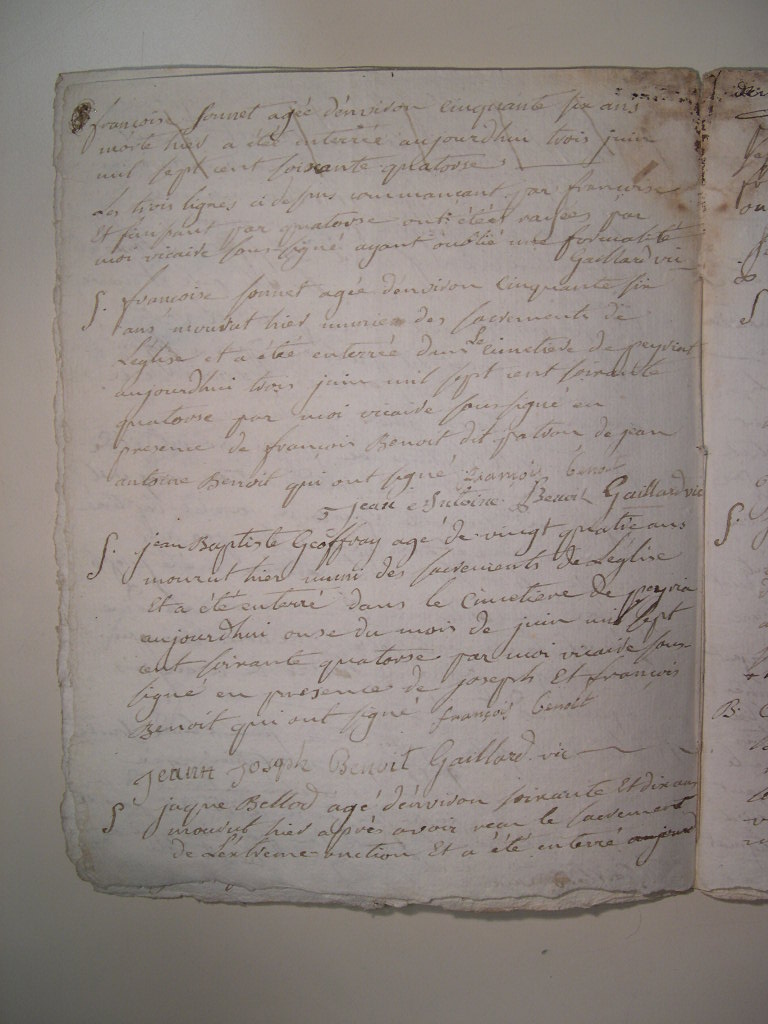 françoise sonnet agée denviron cinquante six ans
morte hier a été enterré aujourdhui trois juin
mil sept cent soixante quatorse
Les trois lignes ci dessus commançant par françoise
Et finissant par quatorse ont étéés raiées par
moi vicaire sous signé ayant oublié une formalité
Gaillard vic
S. françoise sonnet agée denviron cinquante six
ans mourut hier munie des sacrements de
Léglise et a étée enterré dans Le cimetiere de peyriat
aujourdhui trois juin mil sept cent soixante
quatorse par moi vicaire sous signé en
presence de françois Benoit dit patron de jean
antoine Benoit qui ont signé francois benoit
jean Antoine Benoit Gaillard vic
S. jean Baptiste Geoffray agé de vingt quatre ans
mourut hier muni des sacrements de Léglise
Et a été enterré dans le cimetiere de peyria
aujourdhui onse du mois de juin mil sept
cent soixante quatorse par moi vicaire sous
signé en presence de joseph Et françois
Benoit qui ont signé françois benoit
Jean Joseph Benoit Gaillard vic
S jaque Bellod agé denviron soixante Et dix ans
mourut hier après avoir recu le sacrement
de L'extreme onction Et a été enterré aujourd